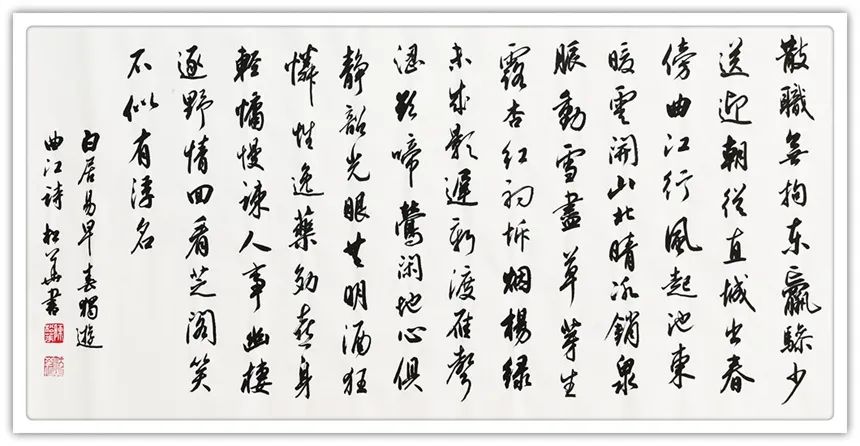 散職無拘束羸驂少
送迎朝從直城出春
傍曲江行風起池東
暖雲開山北晴冰銷泉
脈動雪盡草芽生
露杏紅初坼烟楊綠
未成影遲新渡雁聲
澀欲啼鶯閑地心俱
静韶光眼共明酒狂
憐性逸藥効喜身
輕慵慢疎人事幽棲
逐野情回看芝閣笑
不似有浮名
白居易早春獨遊
曲江詩 松華書